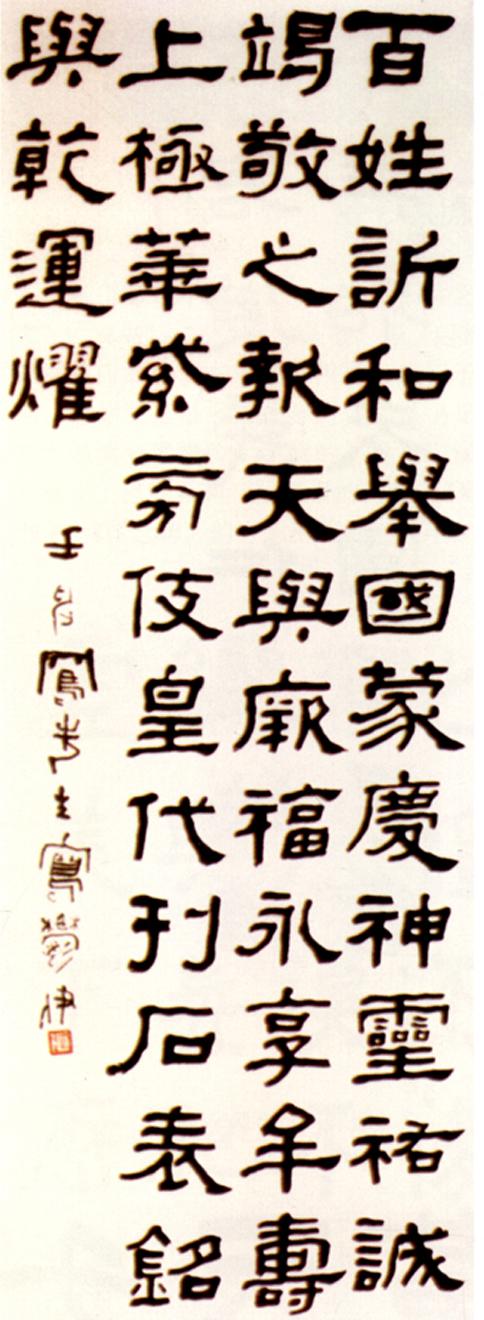 百姓訢和舉國蒙慶神靈祐誠
竭敬之報天與厥福永享牟壽
上極華紫旁伎皇代刊石表銘
與乾運燿
壬